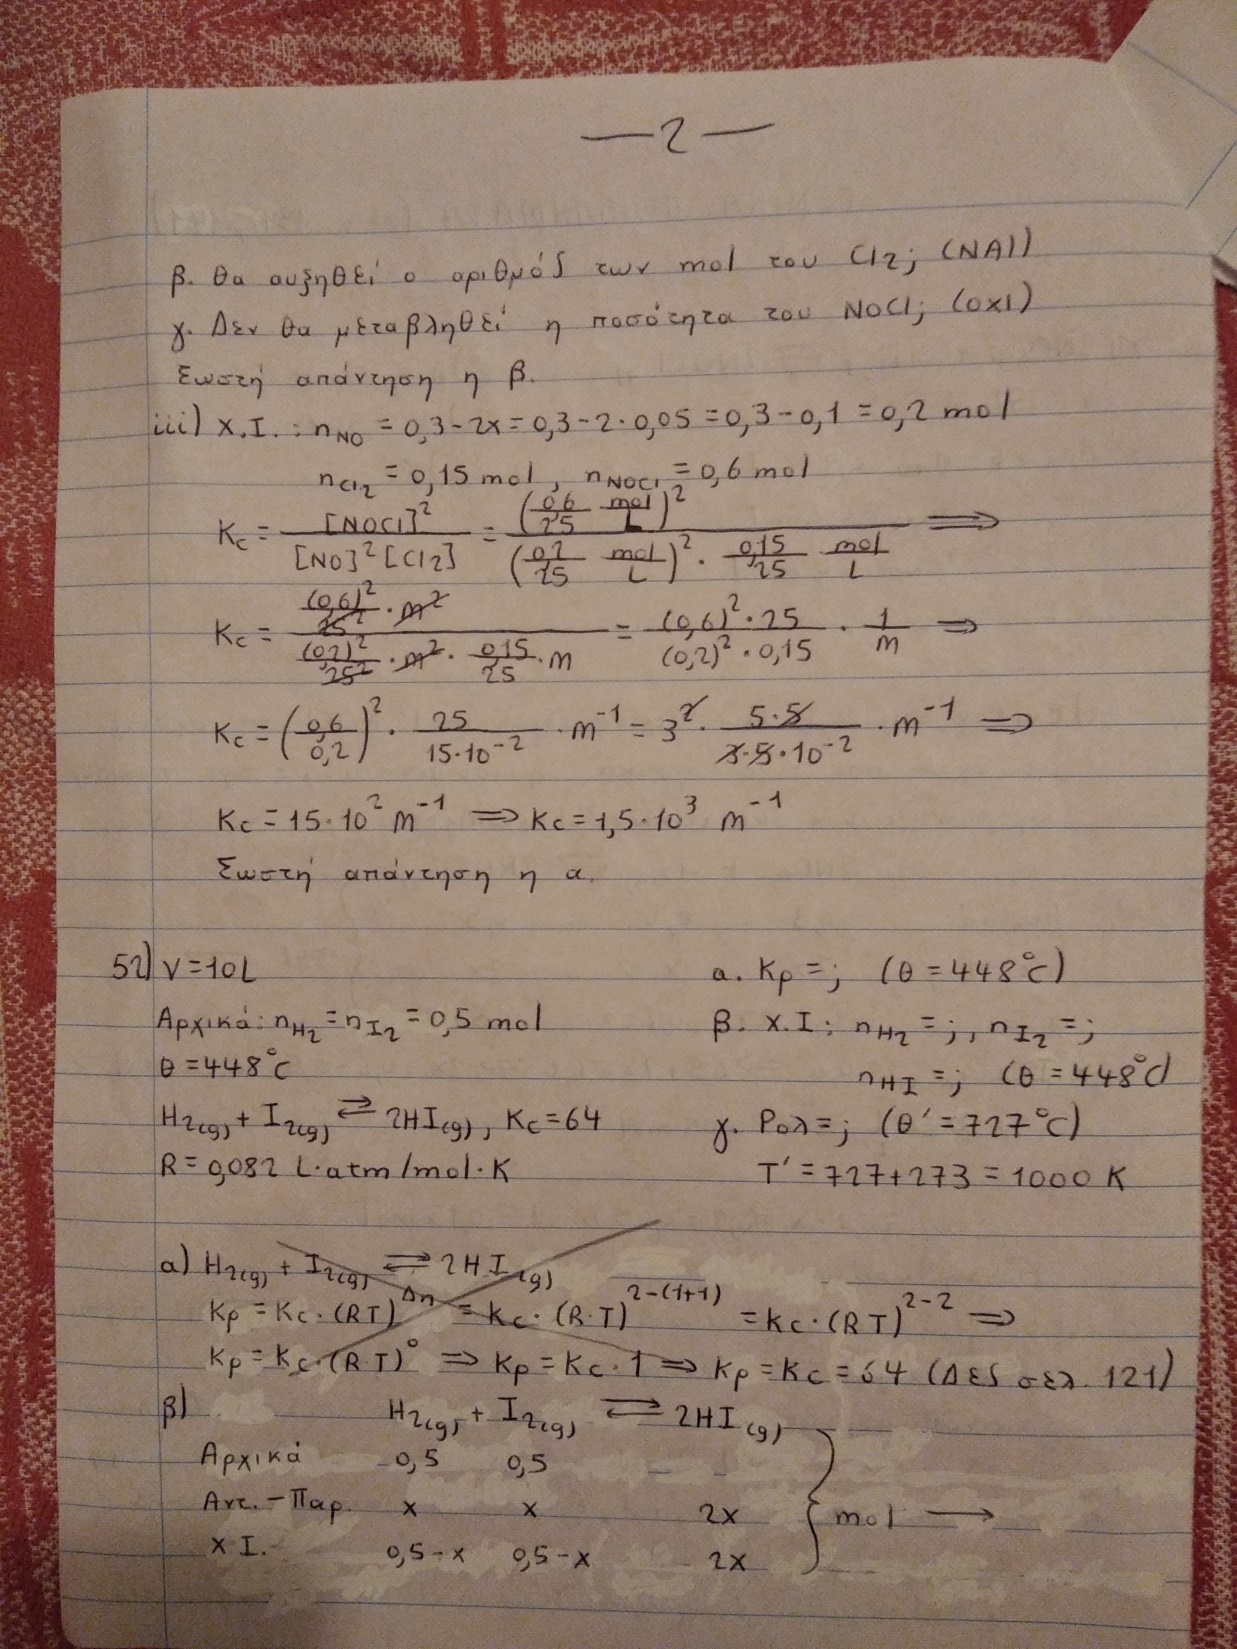 —2—
β. θα αυξηθεί ο αριθμός των mol του Cl₂; (ΝΑΙ)
γ. Δεν θα μεταβληθεί η ποσότητα του NOCl; (ΟΧΙ)
Σωστή απάντηση η β.
iii) Χ.Ι.: n_NO = 0,3-2x = 0,3-2·0,05 = 0,3-0,1 = 0,2 mol
n_Cl₂ = 0,15 mol, n_NOCl = 0,6 mol
Kc = [NOCl]² / [NO]²[Cl₂] = (0,6/25 mol/L)² / (0,2/25 mol/L)² · 0,15/25 mol/L ⟹
Kc = (0,6)²/25² · M² / (0,2)²/25² · M² · 0,15/25 · M = (0,6)²·25 / (0,2)²·0,15 · 1/M ⟹
Kc = (0,6/0,2)² · 25/15·10⁻² · M⁻¹ = 3² · 5·5/3·5·10⁻² · M⁻¹ ⟹
Kc = 15·10² M⁻¹ ⟹ Kc = 1,5·10³ M⁻¹
Σωστή απάντηση η α.
52) V=10L
Αρχικά: n_H₂ = n_I₂ = 0,5 mol
θ = 448°C
H₂(g) + I₂(g) ⇌ 2HI(g), Kc = 64
R = 0,082 L·atm/mol·K
α. Kp =; (θ = 448°C)
β. Χ.Ι: n_H₂ =;, n_I₂ =;
n_HI =; (θ = 448°C)
γ. Ρολ =; (θ' = 727°C)
T' = 727+273 = 1000 K
α) H₂(g) + I₂(g) ⇌ 2HI(g)
Kp = Kc·(RT)^Δn = Kc·(R·T)^2-(1+1) = Kc·(RT)^2-2 ⟹
Kp = Kc·(R·T)⁰ ⟹ Kp = Kc·1 ⟹ Kp = Kc = 64 (Δες σελ. 121)
β) H₂(g) + I₂(g) ⇌ 2HI(g)
Αρχικά 0,5 0,5
Αντ.-Παρ. x x 2x } mol ⟶
Χ Ι. 0,5-x 0,5-x 2x